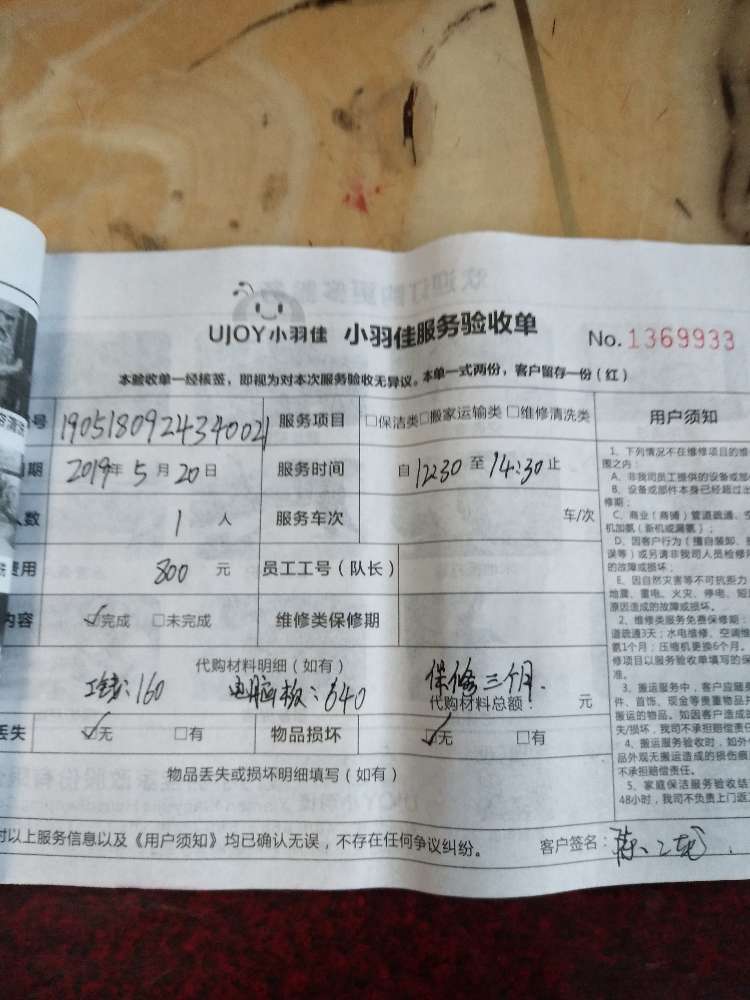 UJOY小羽佳 小羽佳服务验收单 No. 1369933
本验收单一经核签，即视为对本次服务验收无异议。本单一式两份，客户留存一份（红）
号 19051809243400021 服务项目 □保洁类□搬家运输类□维修清洗类 用户须知
期 2019年5月20日 服务时间 自12:30至14:30止
人数 1人 服务车次 车/次
费用 800元 员工工号（队长）
内容 ☑完成 □未完成 维修类保修期
代购材料明细（如有）
工钱：160 电脑板：640 保修三个月.
代购材料总额： 元
丢失 ☑无 □有 物品损坏 ☑无 □有
物品丢失或损坏明细填写（如有）
对以上服务信息以及《用户须知》均已确认无误，不存在任何争议纠纷。 客户签名：
1、下列情况不在维修项目的维
围之内：
A、非我司员工提供的设备或部
B、设备或部件本身已经超过
修期；
C、商业（商铺）管道疏通、空
机加氨（新机或漏氨）；
D、因客户行为（擅自装卸、
误等）或另请非我司人员检修
的故障或损坏；
E、因自然灾害等不可抗拒力
地震、雷电、火灾、停电、短
原因造成的故障或损坏。
2、维修类服务免费保修期：
道疏通3天；水电维修、空调维
氨1个月；压缩机更换6个月。
修项目以服务验收单填写的保
准。
3、搬运服务中，客户应随
件、首饰、现金等贵重物品
搬运的物品。如因客户造成的
失/损坏，我司不承担赔偿责任
4、搬运服务验收时，如外
品外观无搬运造成的损伤痕
不承担赔偿责任。
5、家庭保洁服务验收结
48小时，我司不负责上门返